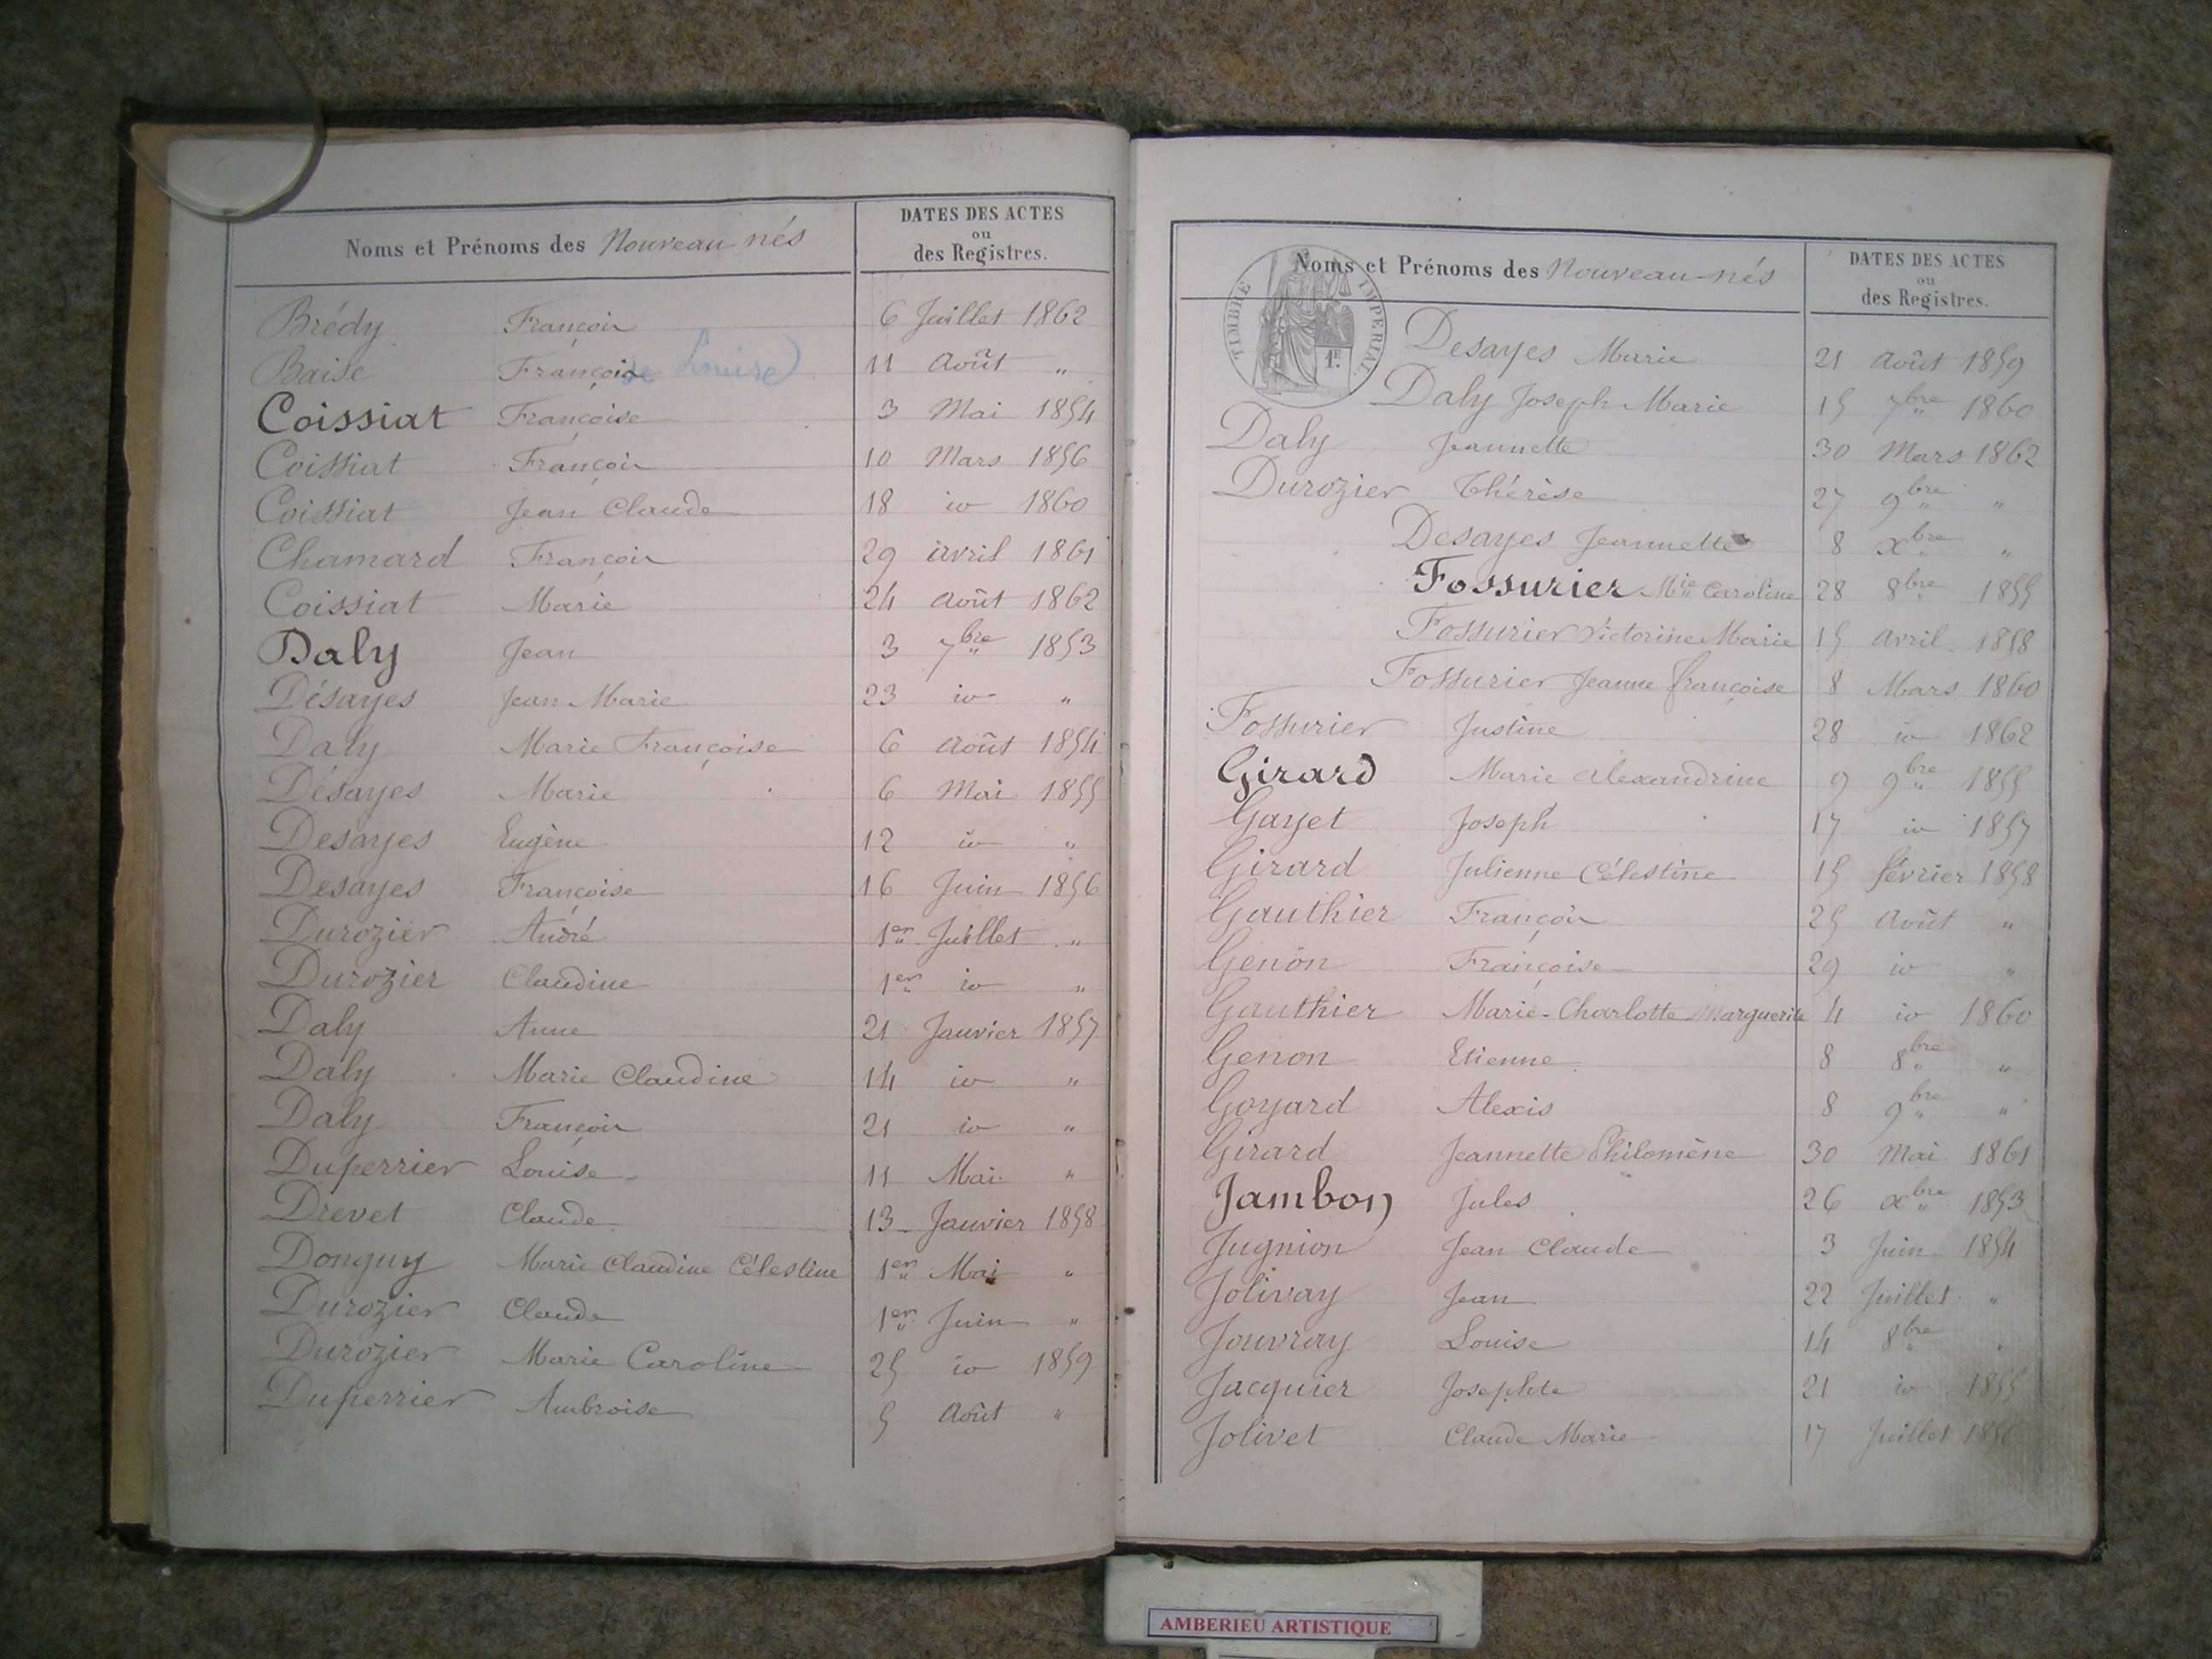 Noms et Prénoms des Nouveau-nés
DATES DES ACTES
ou
des Registres.
Brédy François 6 Juillet 1862
Baise Françoise Louise 11 Août "
Coissiat Françoise 3 Mai 1854
Coissiat François 10 Mars 1856
Coissiat Jean Claude 18 io 1860
Chamard François 29 avril 1861
Coissiat Marie 24 août 1862
Daly Jean 3 7bre 1853
Désayes Jean Marie 23 io "
Daly Marie Françoise 6 août 1854
Désayes Marie 6 Mai 1855
Desayes Eugène 12 io "
Desayes Françoise 16 Juin 1856
Durozier André 1er Juillet "
Durozier Claudine 1er io "
Daly Anne 21 Janvier 1857
Daly Marie Claudine 14 io "
Daly François 21 io "
Duperrier Louise 11 Mai "
Drevet Claude 13 Janvier 1858
Donguy Marie Claudine Célestine 1er Mai "
Durozier Claude 1er Juin "
Durozier Marie Caroline 25 io 1859
Duperrier Ambroise 5 Août "
Noms et Prénoms des Nouveau-nés
DATES DES ACTES
ou
des Registres.
TIMBRE IMPERIAL
1F.
Desayes Marie 21 Août 1859
Daly Joseph Marie 15 7bre 1860
Daly Jeannette 30 Mars 1862
Durozier Thérèse 27 9bre "
Desayes Jeannette 8 xbre "
Fossurier Mie Caroline 28 8bre 1855
Fossurier Victorine Marie 15 avril 1858
Fossurier Jeanne françoise 8 Mars 1860
Fossurier Justine 28 io 1862
Girard Marie Alexandrine 9 9bre 1855
Gayet Joseph 17 io 1857
Girard Julienne Célestine 15 février 1858
Gauthier François 25 Août "
Genon Françoise 29 io "
Gauthier Marie-Charlotte Marguerite 4 io 1860
Genon Etienne 8 8bre "
Goyard Alexis 8 9bre "
Girard Jeannette Philomène 30 Mai 1861
Jambon Jules 26 xbre 1853
Jugnion Jean Claude 3 Juin 1854
Jolivay Jean 22 Juillet "
Jouvray Louise 14 8bre "
Jacquier Josephte 21 io 1855
Jolivet Claude Marie 17 Juillet 1856
AMBERIEU ARTISTIQUE